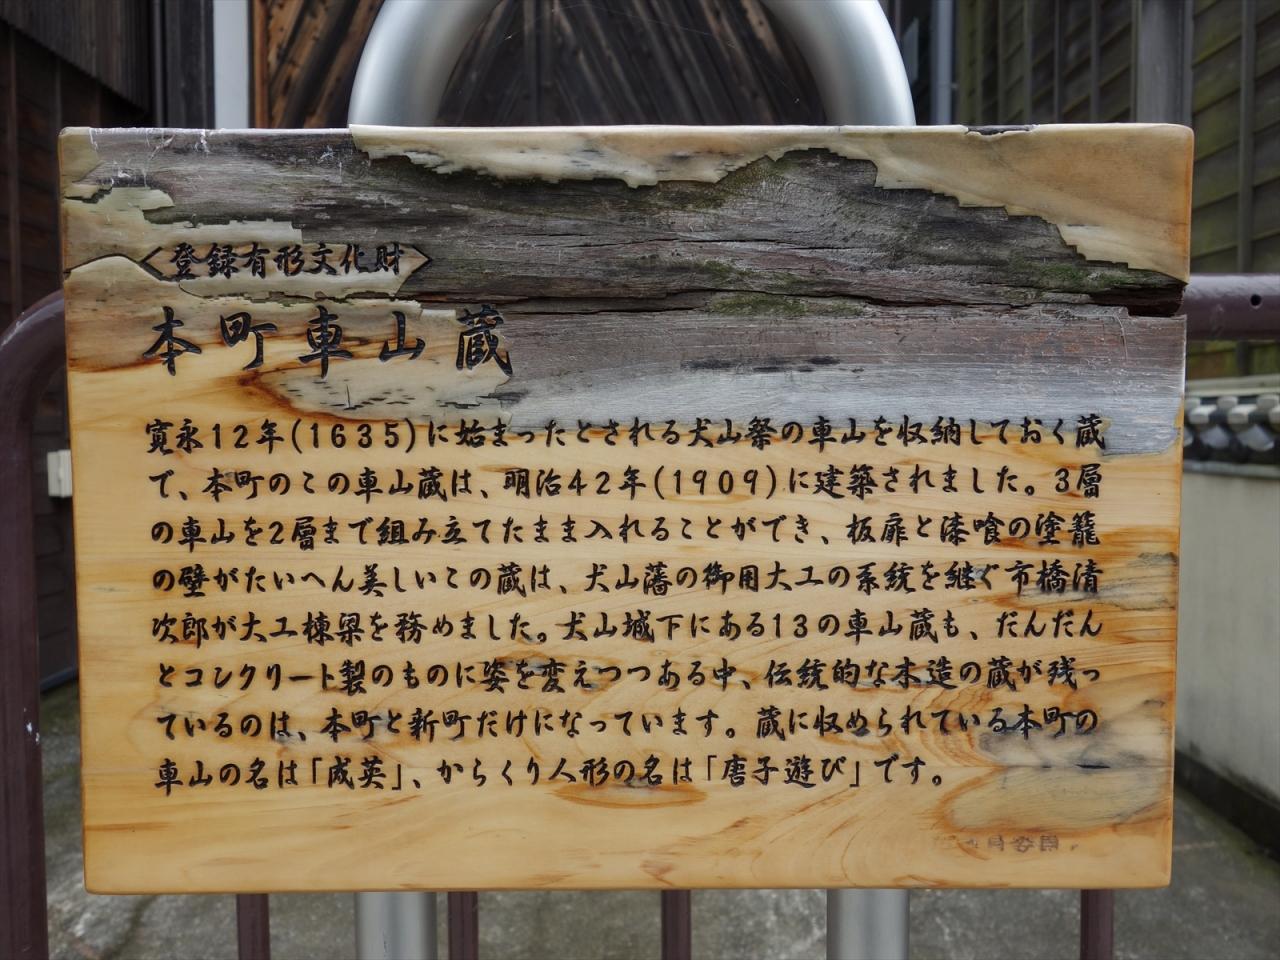 〈登録有形文化財〉
本町車山蔵
寛永12年(1635)に始まったとされる犬山祭の車山を収納しておく蔵
で、本町のこの車山蔵は、明治42年(1909)に建築されました。3層
の車山を2層まで組み立てたまま入れることができ、板扉と漆喰の塗籠
の壁がたいへん美しいこの蔵は、犬山藩の御用大工の系統を継ぐ市橋清
次郎が大工棟梁を務めました。犬山城下にある13の車山蔵も、だんだん
とコンクリート製のものに姿を変えつつある中、伝統的な木造の蔵が残っ
ているのは、本町と新町だけになっています。蔵に収められている本町の
車山の名は「咸英」、からくり人形の名は「唐子遊び」です。